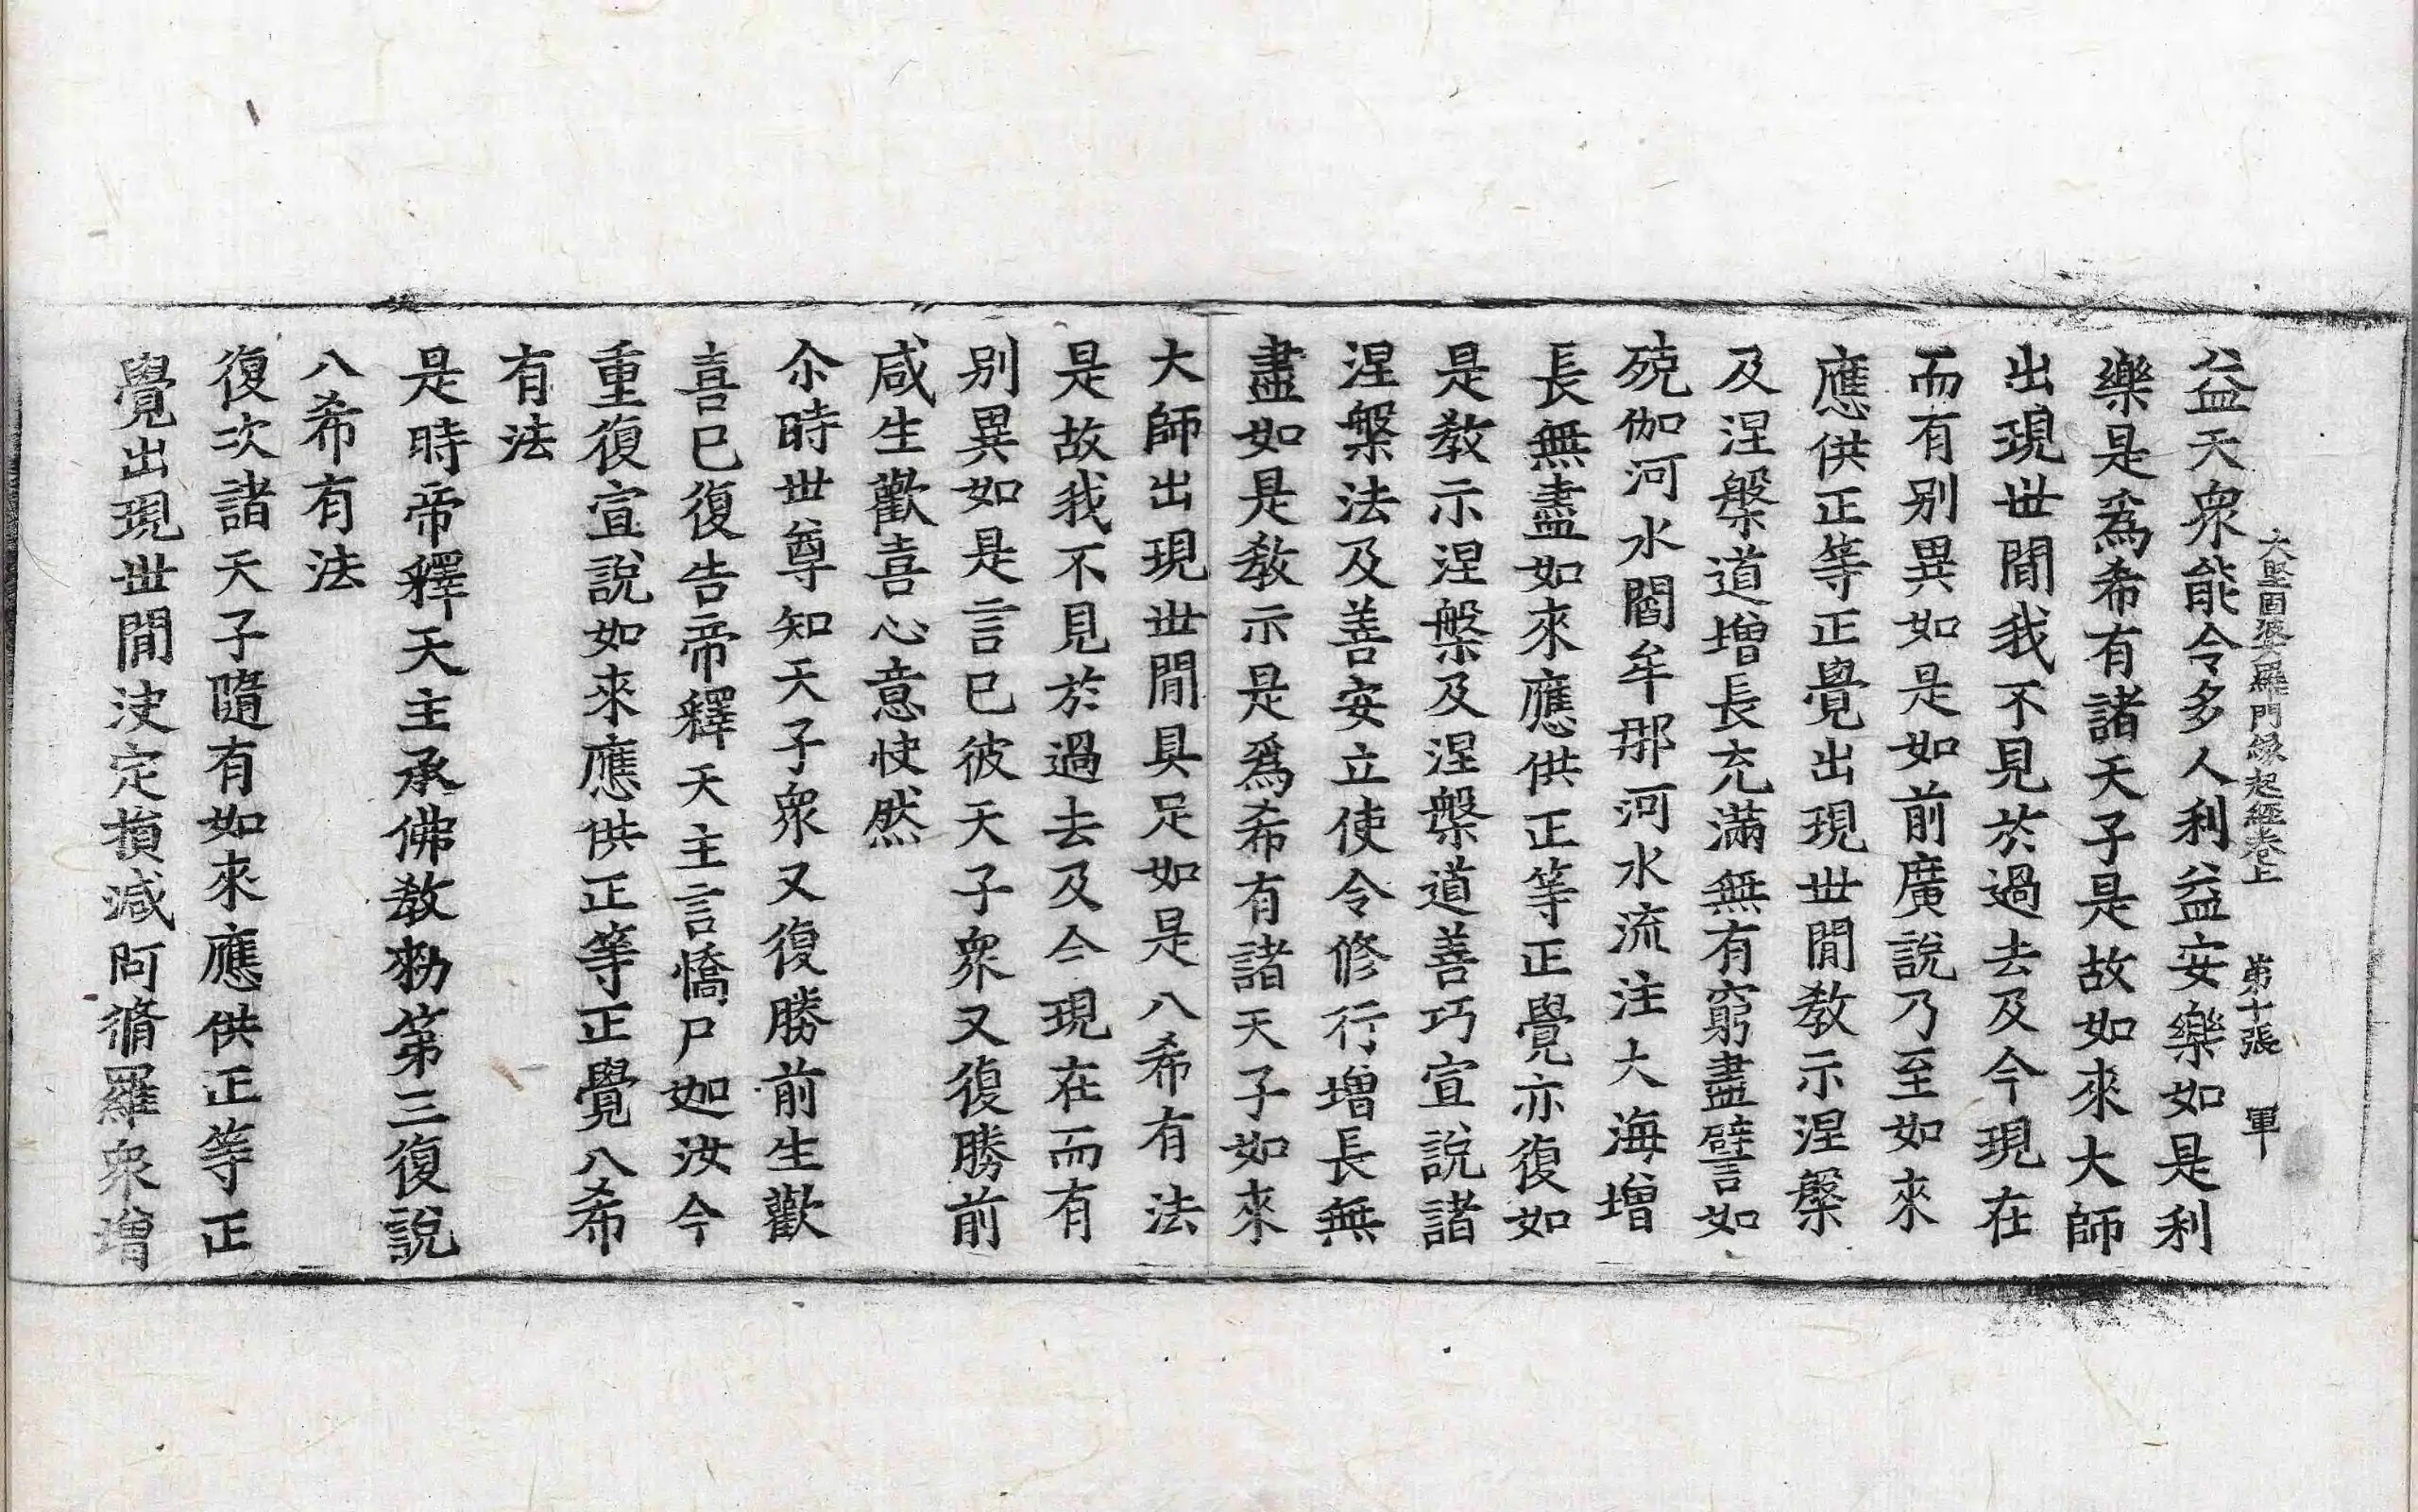 大堅固婆羅門緣起經卷上 第十張 軍
益天衆能令多人利益安樂如是利
樂是爲希有諸天子是故如來大師
出現世閒我不見於過去及今現在
而有別異如是如前廣說乃至如來
應供正等正覺出現世閒教示涅槃
及涅槃道增長充滿無有窮盡譬如
殑伽河水閻牟那河水流注大海增
長無盡如來應供正等正覺亦復如
是教示涅槃及涅槃道善巧宣說諸
涅槃法及善安立使令修行增長無
盡如是教示是爲希有諸天子如來
大師出現世閒具足如是八希有法
是故我不見於過去及今現在而有
別異如是言已彼天子衆又復勝前
咸生歡喜心意快然
尒時世尊知天子衆又復勝前生歡
喜已復告帝釋天主言憍尸迦汝今
重復宣說如來應供正等正覺八希
有法
是時帝釋天主承佛教勑第三復說
八希有法
復次諸天子隨有如來應供正等正
覺出現世閒決定損減阿脩羅衆增